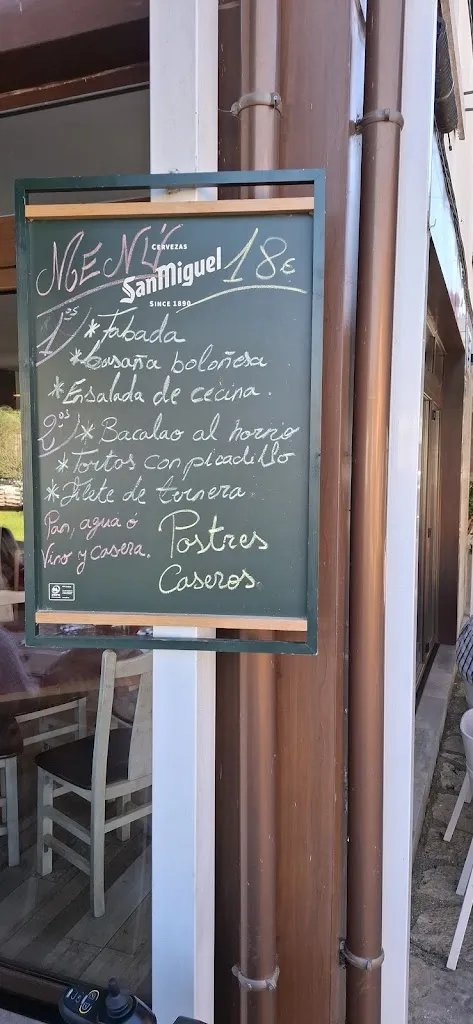 MENÚ
CERVEZAS
SanMiguel
SINCE 1890
18€
1os
*Fabada
*Lasaña boloñesa
*Ensalada de cecina.
2os
*Bacalao al horno
*Tortos con picadillo
*Filete de ternera.
Pan, agua ó
Vino y casera.
Postres
Caseros.